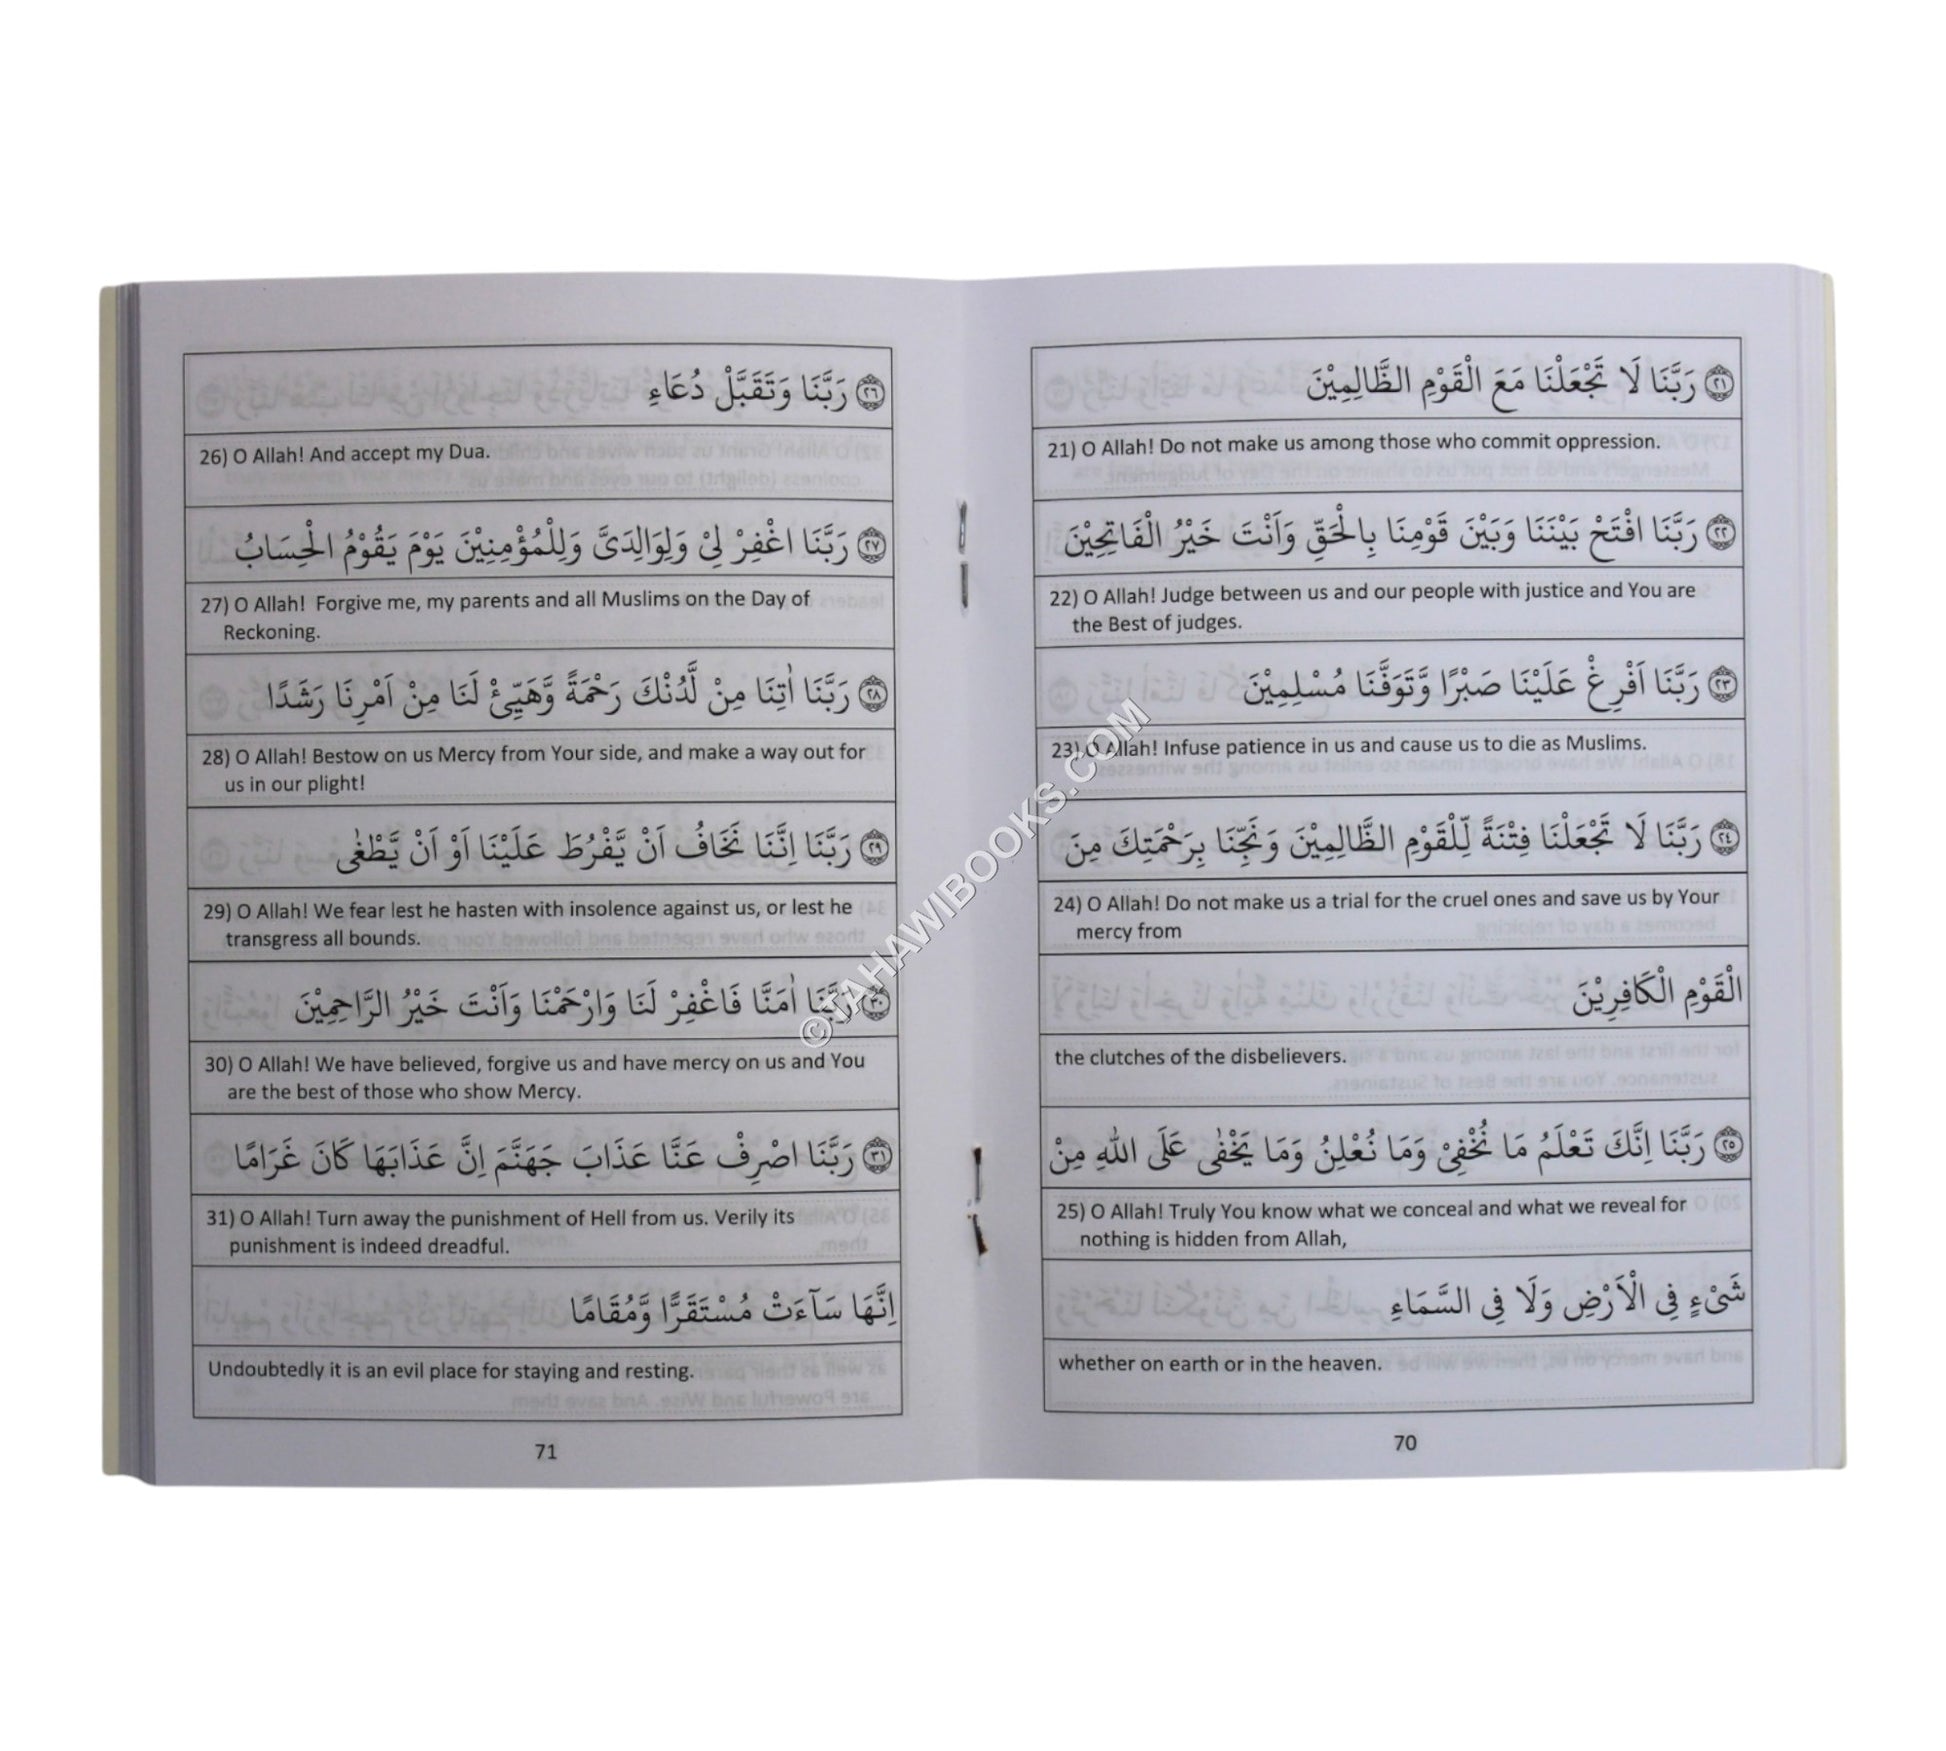 ٢١ رَبَّنَا لَا تَجْعَلْنَا مَعَ الْقَوْمِ الظَّالِمِيْنَ
21) O Allah! Do not make us among those who commit oppression.
٢٢ رَبَّنَا افْتَحْ بَيْنَنَا وَبَيْنَ قَوْمِنَا بِالْحَقِّ وَاَنْتَ خَيْرُ الْفَاتِحِيْنَ
22) O Allah! Judge between us and our people with justice and You are
the Best of judges.
٢٣ رَبَّنَا اَفْرِغْ عَلَيْنَا صَبْرًا وَّتَوَفَّنَا مُسْلِمِيْنَ
23) O Allah! Infuse patience in us and cause us to die as Muslims.
٢٤ رَبَّنَا لَا تَجْعَلْنَا فِتْنَةً لِّلْقَوْمِ الظَّالِمِيْنَ وَنَجِّنَا بِرَحْمَتِكَ مِنَ
24) O Allah! Do not make us a trial for the cruel ones and save us by Your
mercy from
الْقَوْمِ الْكَافِرِيْنَ
the clutches of the disbelievers.
٢٥ رَبَّنَا اِنَّكَ تَعْلَمُ مَا نُخْفِيْ وَمَا نُعْلِنُ وَمَا يَخْفٰى عَلَى اللهِ مِنْ
25) O Allah! Truly You know what we conceal and what we reveal for
nothing is hidden from Allah,
شَىْءٍ فِي الْاَرْضِ وَلَا فِي السَّمَاءِ
whether on earth or in the heaven.
70
٢٦ رَبَّنَا وَتَقَبَّلْ دُعَاءِ
26) O Allah! And accept my Dua.
٢٧ رَبَّنَا اغْفِرْ لِيْ وَلِوَالِدَىَّ وَلِلْمُؤْمِنِيْنَ يَوْمَ يَقُوْمُ الْحِسَابُ
27) O Allah! Forgive me, my parents and all Muslims on the Day of
Reckoning.
٢٨ رَبَّنَا اٰتِنَا مِنْ لَّدُنْكَ رَحْمَةً وَّهَيِّئْ لَنَا مِنْ اَمْرِنَا رَشَدًا
28) O Allah! Bestow on us Mercy from Your side, and make a way out for
us in our plight!
٢٩ رَبَّنَا اِنَّنَا نَخَافُ اَنْ يَّفْرُطَ عَلَيْنَا اَوْ اَنْ يَّطْغٰى
29) O Allah! We fear lest he hasten with insolence against us, or lest he
transgress all bounds.
٣٠ رَبَّنَا اٰمَنَّا فَاغْفِرْ لَنَا وَارْحَمْنَا وَاَنْتَ خَيْرُ الرَّاحِمِيْنَ
30) O Allah! We have believed, forgive us and have mercy on us and You
are the best of those who show Mercy.
٣١ رَبَّنَا اصْرِفْ عَنَّا عَذَابَ جَهَنَّمَ اِنَّ عَذَابَهَا كَانَ غَرَامًا
31) O Allah! Turn away the punishment of Hell from us. Verily its
punishment is indeed dreadful.
اِنَّهَا سَآءَتْ مُسْتَقَرًّا وَّمُقَامًا
Undoubtedly it is an evil place for staying and resting.
71
©TAHAWIBOOKS.COM